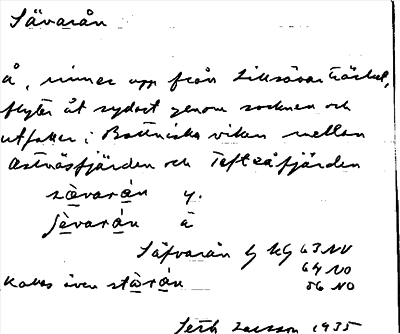 Sävarån
å, rinner upp från Siksävarträsket,
flyter åt sydost genom socknen och
utfaller i Bottniska viken mellan
Ostnäsfjärden och Tefteåfjärden
sävarán y.
sèvarán ä
Säfvarån GKG 63 NV
64 NO
Kallas även stárán 56 NO
Seth Larsson 1935